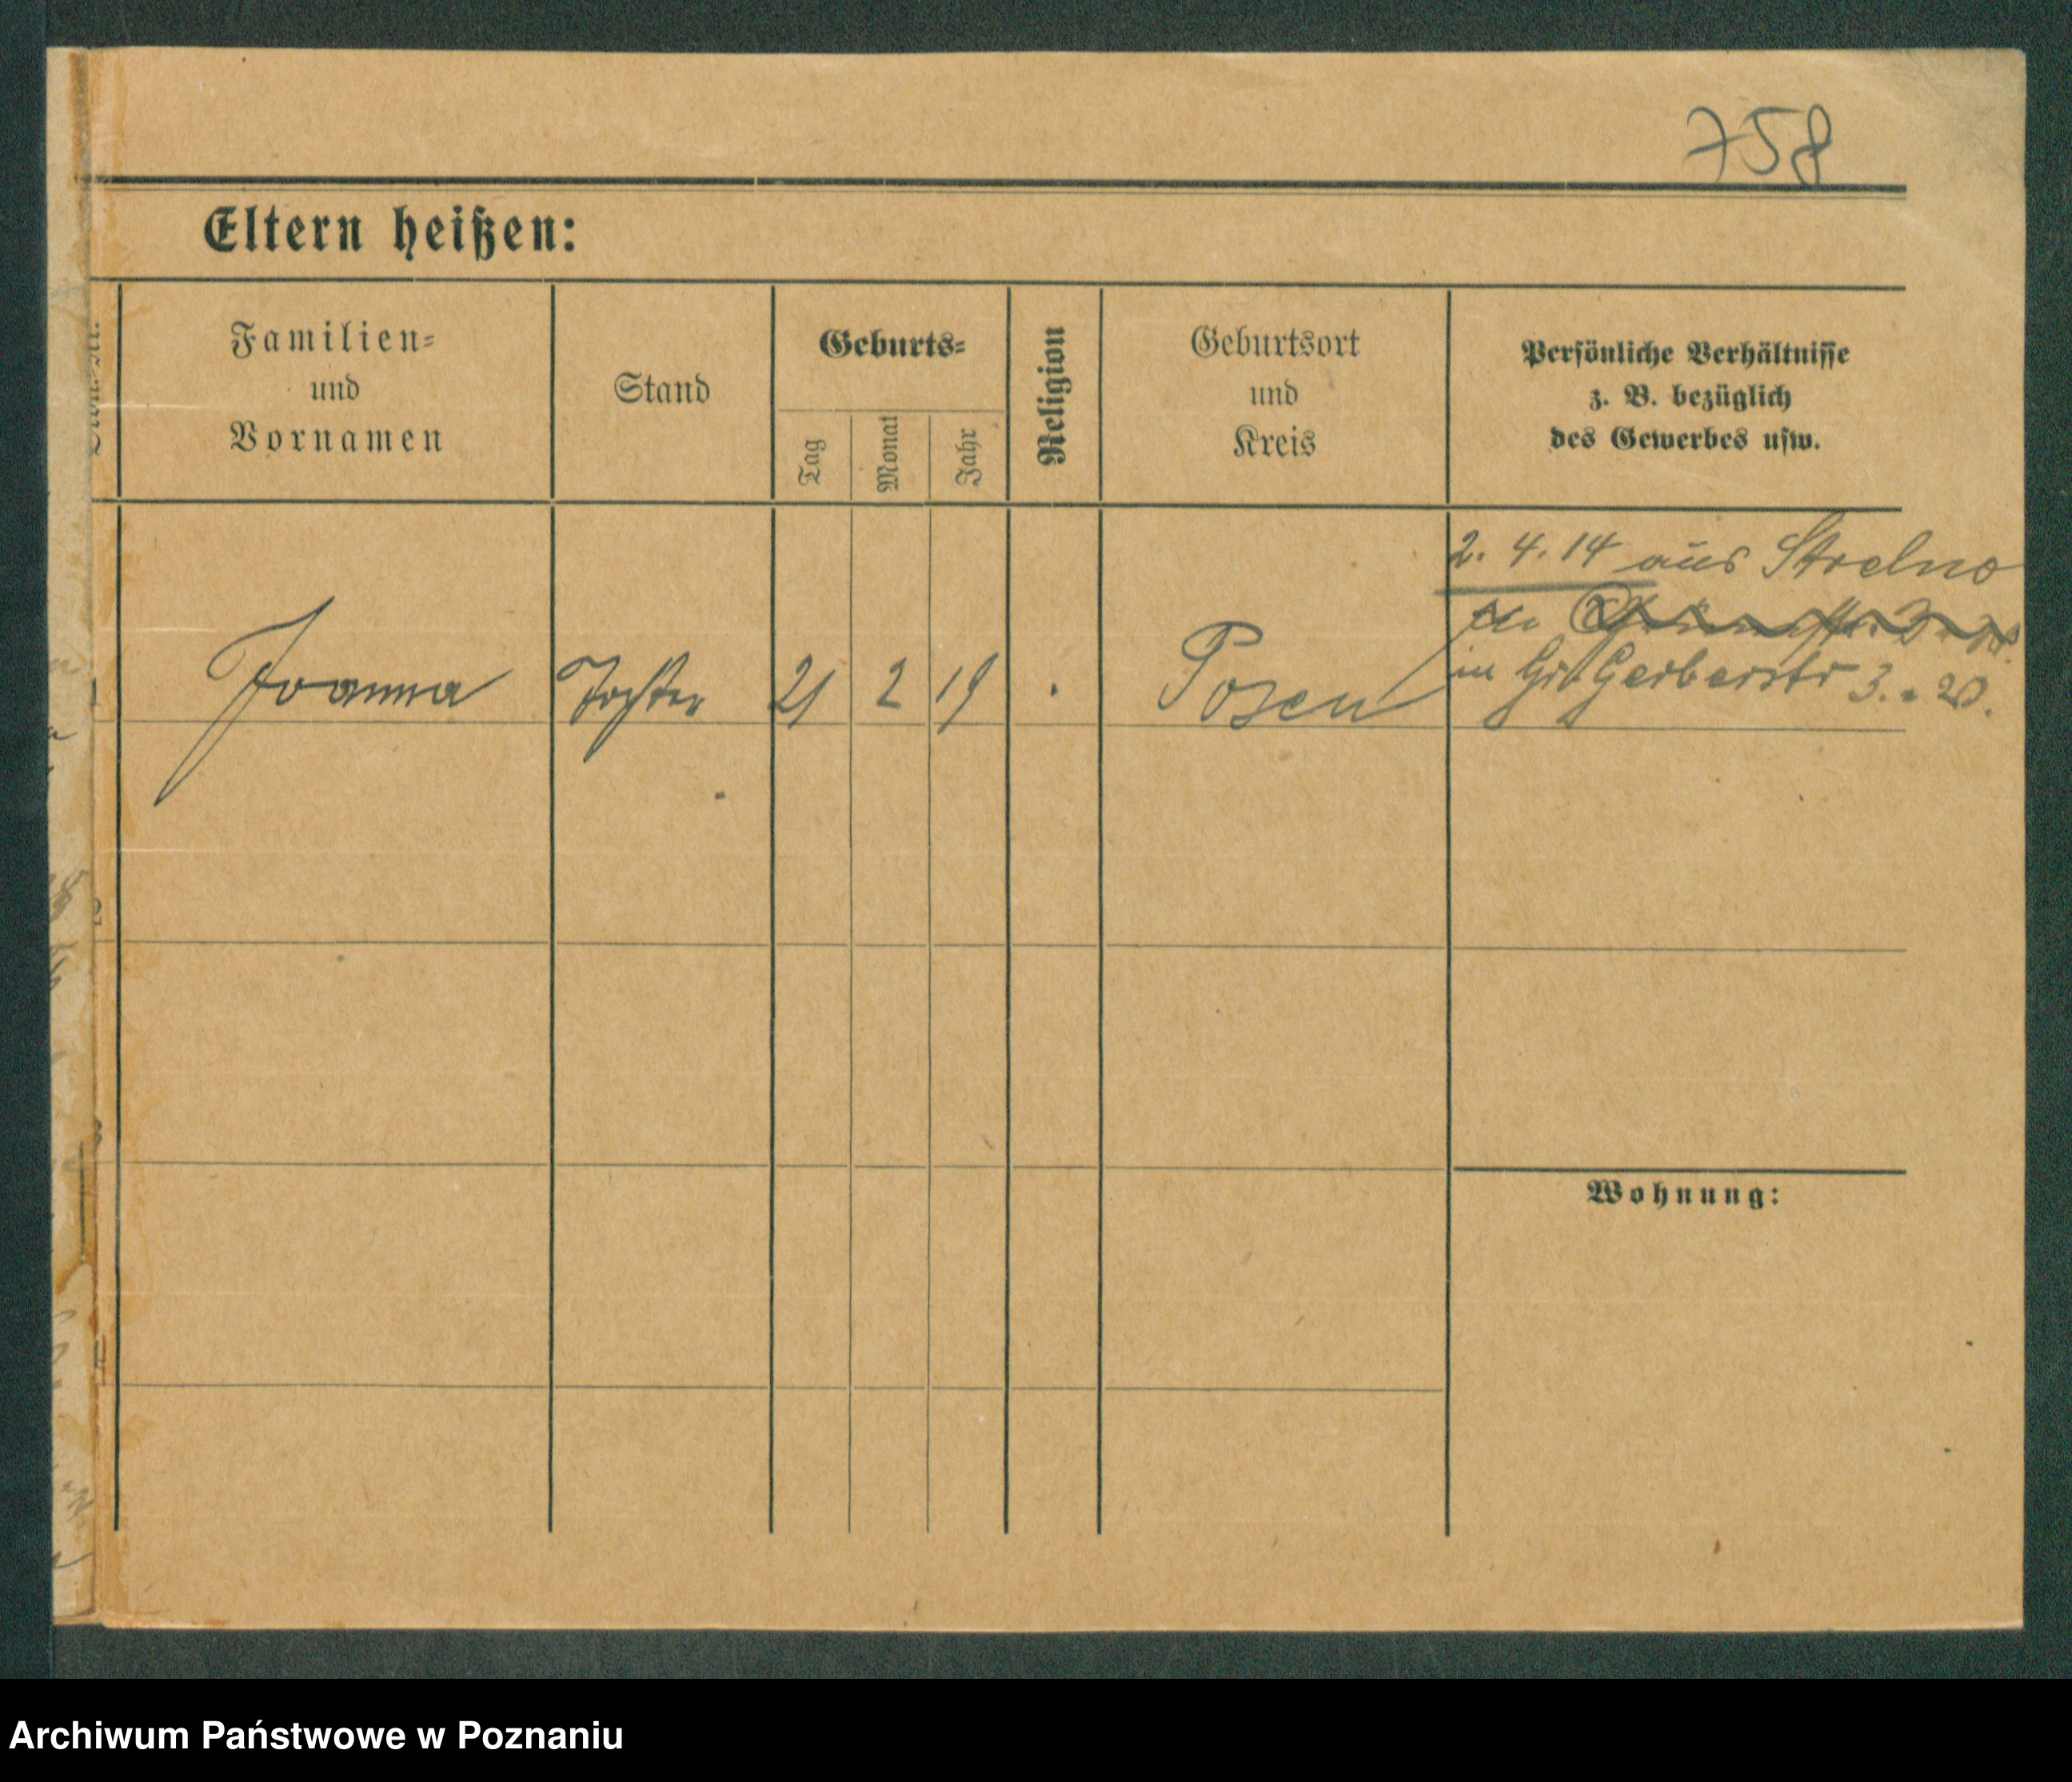 758
Eltern heißen:
Familien=
und
Vornamen
Stand
Geburts=
Tag
Monat
Jahr
Religion
Geburtsort
und
Kreis
Persönliche Verhältnisse
z. B. bezüglich
des Gewerbes usw.
2. 4. 14 aus Strelno
in Gr Gerberstr 3.
Joanna
Tochter
21
2
19
Posen
Wohnung:
Archiwum Państwowe w Poznaniu